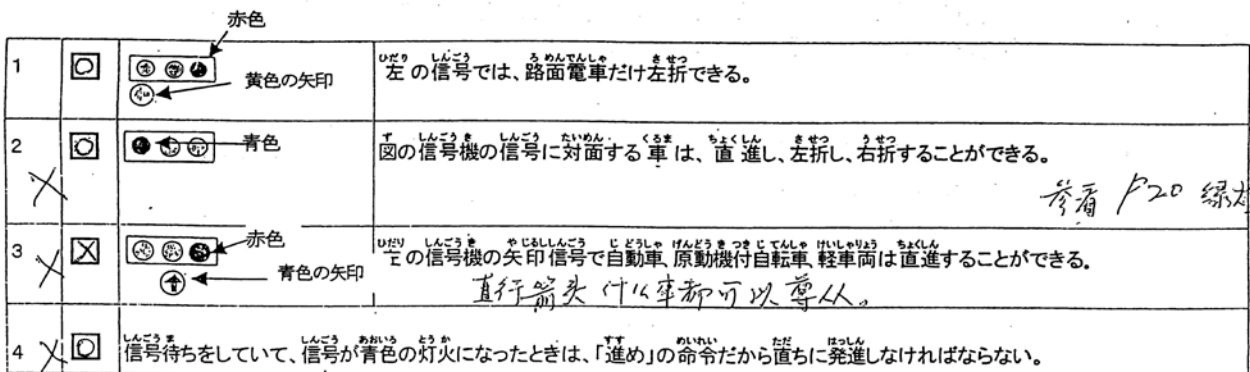 赤色
1 黄色の矢印 左の信号では、路面電車だけ左折できる。
2 青色 図の信号機の信号に対面する車は、直進し、左折し、右折することができる。
参看 P20 绿
3 赤色 左の信号機の矢印信号で自動車、原動機付自転車、軽車両は直進することができる。
青色の矢印
直行箭头 什么车都可以尊从。
4 信号待ちをしていて、信号が青色の灯火になったときは、「進め」の命令だから直ちに発進しなければならない。